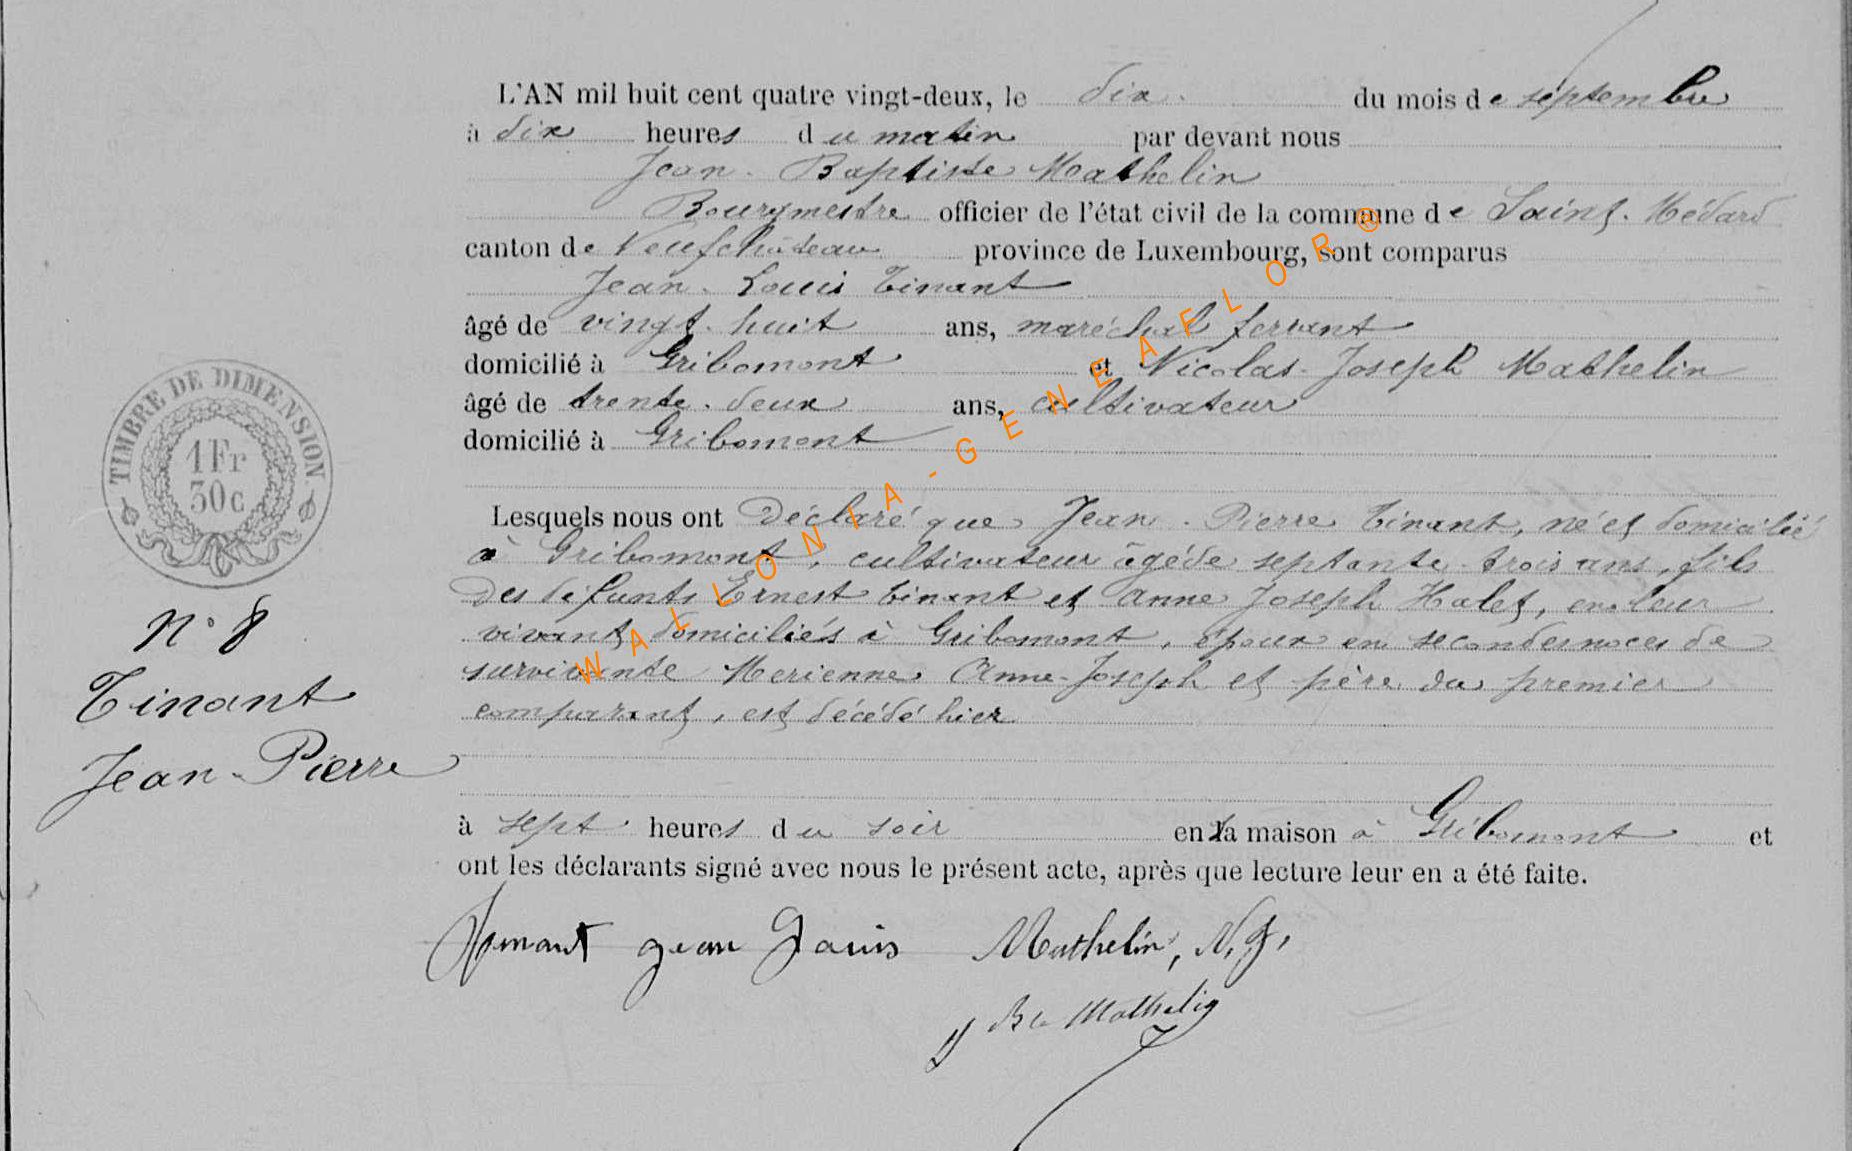 L'AN mil huit cent quatre vingt-deux, le dix du mois de septembre
à dix heures du matin par devant nous
Jean-Baptiste Mathelin
Bourgmestre officier de l'état civil de la commune de Saint-Médard
canton de Neufchâteau province de Luxembourg, sont comparus
Jean-Louis Tinant
âgé de vingt-huit ans, maréchal ferrant
domicilié à Gribomont et Nicolas-Joseph Mathelin
âgé de trente-deux ans, cultivateur
domicilié à Gribomont
Lesquels nous ont déclaré que Jean-Pierre Tinant, né et domicilié
à Gribomont, cultivateur âgé de septante-trois ans, fils
des défunts Ernest Tinant et Anne Joseph Halet, en leur
vivant domiciliés à Gribomont, époux en secondes noces de
survivante Merienne Anne-Joseph et père du premier
comparant, est décédé hier
à sept heures du soir en sa maison à Gribomont et
ont les déclarants signé avec nous le présent acte, après que lecture leur en a été faite.
Tinant jean Louis Mathelin, N. J.
J Bte Mathelin
TIMBRE DE DIMENSION
1 Fr
30 c
N° 8
Tinant
Jean-Pierre
WALLONIA-GENEAFLOR®